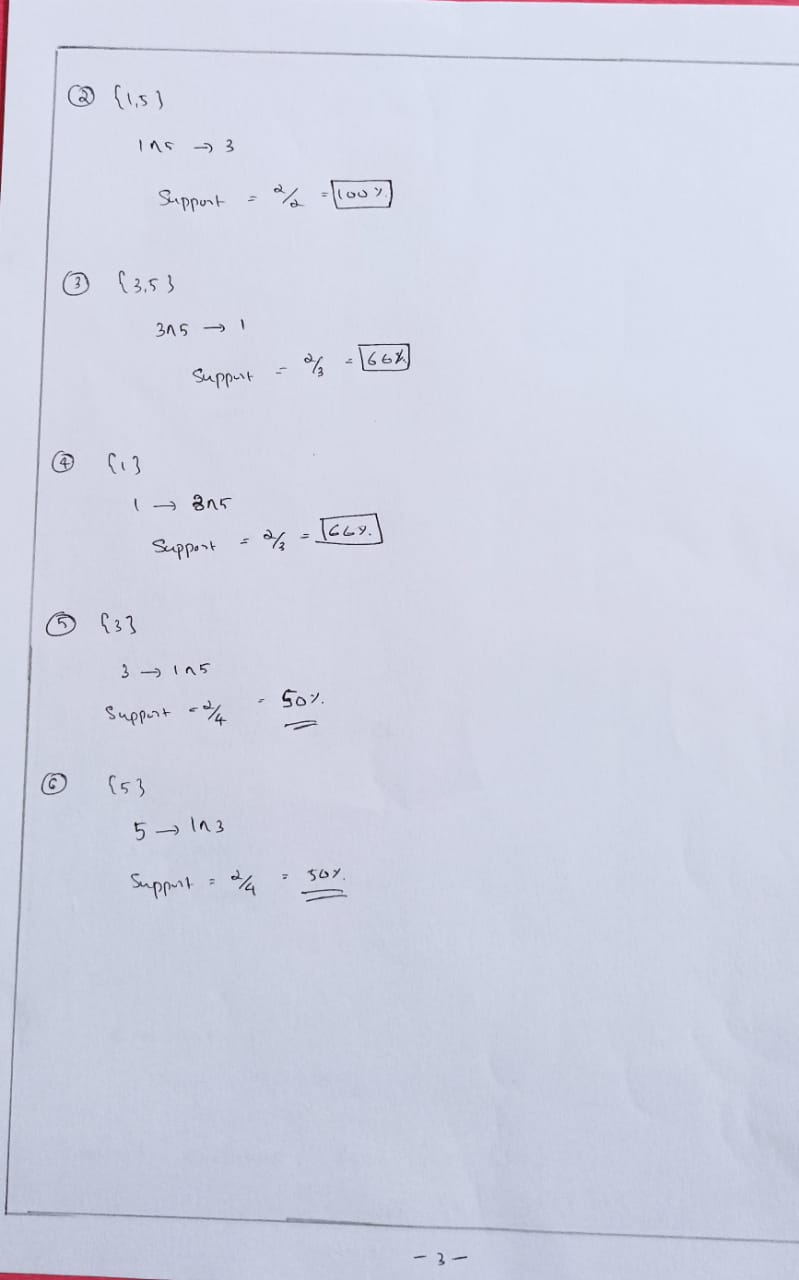 ② {1,5}
1∩5 → 3
Support = 2/2 = 100%
③ {3,5}
3∩5 → 1
Support = 2/3 = 66%
④ {1}
1 → 3∩5
Support = 2/3 = 66%
⑤ {3}
3 → 1∩5
Support = 2/4 = 50%
⑥ {5}
5 → 1∩3
Support = 2/4 = 50%
- 3 -